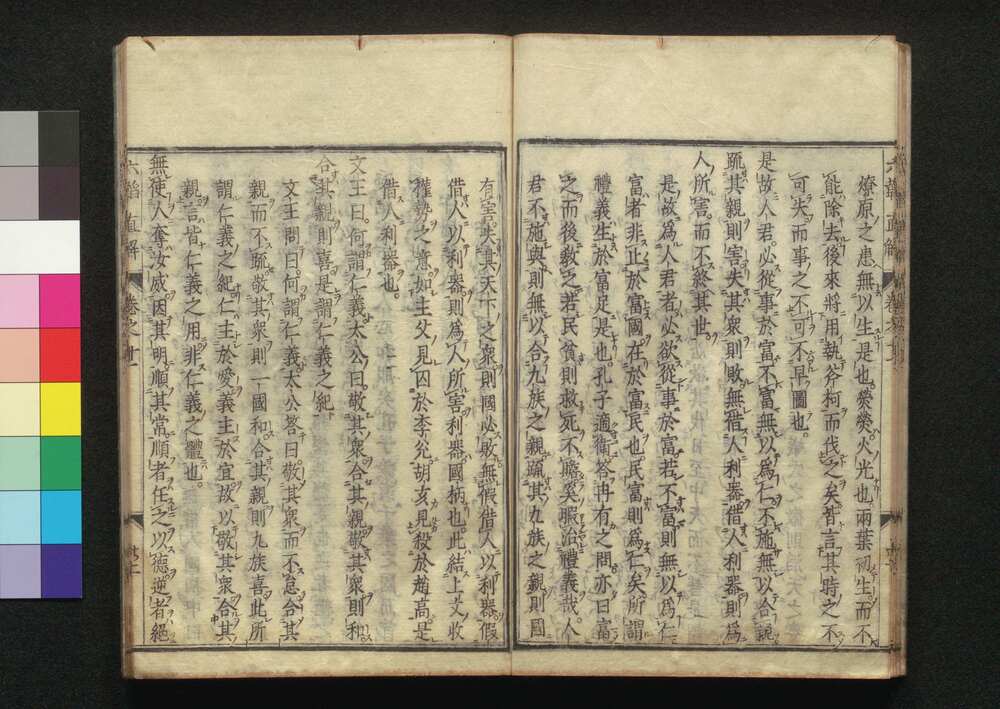 燎原之患無以生是也熒熒火光也兩葉初生而不
能除去後來將用執斧柯而伐之矣皆言其時之不
可失而事之不可不早圖也
是故人君必從事於富不富無以爲仁不施無以合親
疏其親則害失其衆則敗無借人利器借人利器則爲
人所害而不終其世
是故爲人君者必欲從事於富若不富則無以爲仁
富者非止於富國在於富民也民富則爲仁矣所謂
禮義生於富足是也孔子適衞答冉有之問亦曰富
之而後教之若民貧則救死不贍奚暇治禮義哉人
君不施與則無以合九族之親疏其九族之親則國
有害失其天下之衆則國必敗無假借人以利器假
借人以利器則爲人所害利器國柄也此結上文收
權勢之意如主父見囚於李兌胡亥見殺於趙高是
借人利器也
文王曰何謂仁義太公曰敬其衆合其親敬其衆則和
合其親則喜是謂仁義之紀
文王問曰何謂仁義太公答曰敬其衆而不怠合其
親而不疏敬其衆則一國和合其親則九族喜此所
謂仁義之紀仁主於愛義主於宜故以敬其衆合其
親言皆仁義之用非仁義之體也
無使人奪汝威因其明順其常順者任之以德逆者絕
六韜直解
卷之一